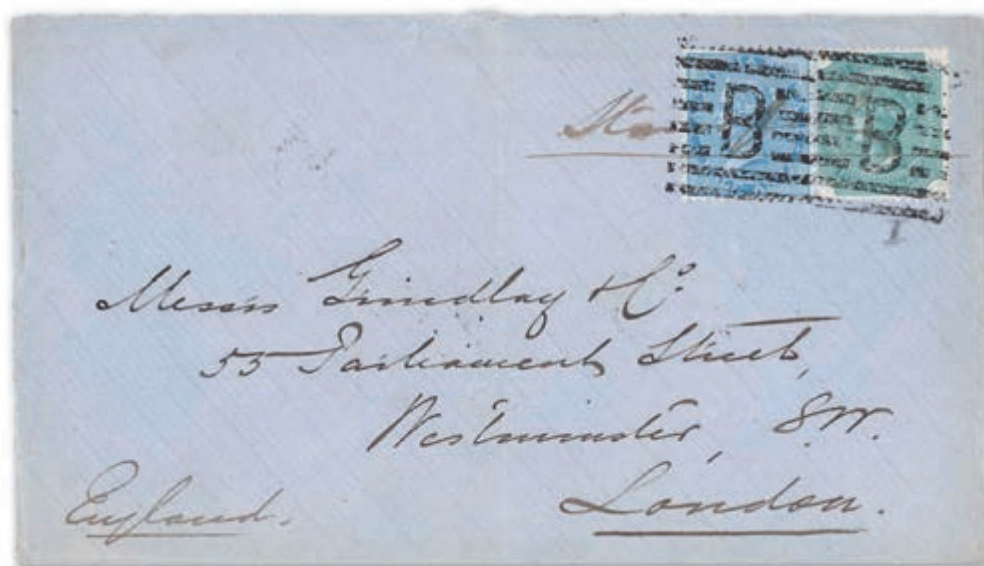 B B
Messrs Grindlay & Co.
55 Parliament Street,
Westminster, S.W.
London.
England.